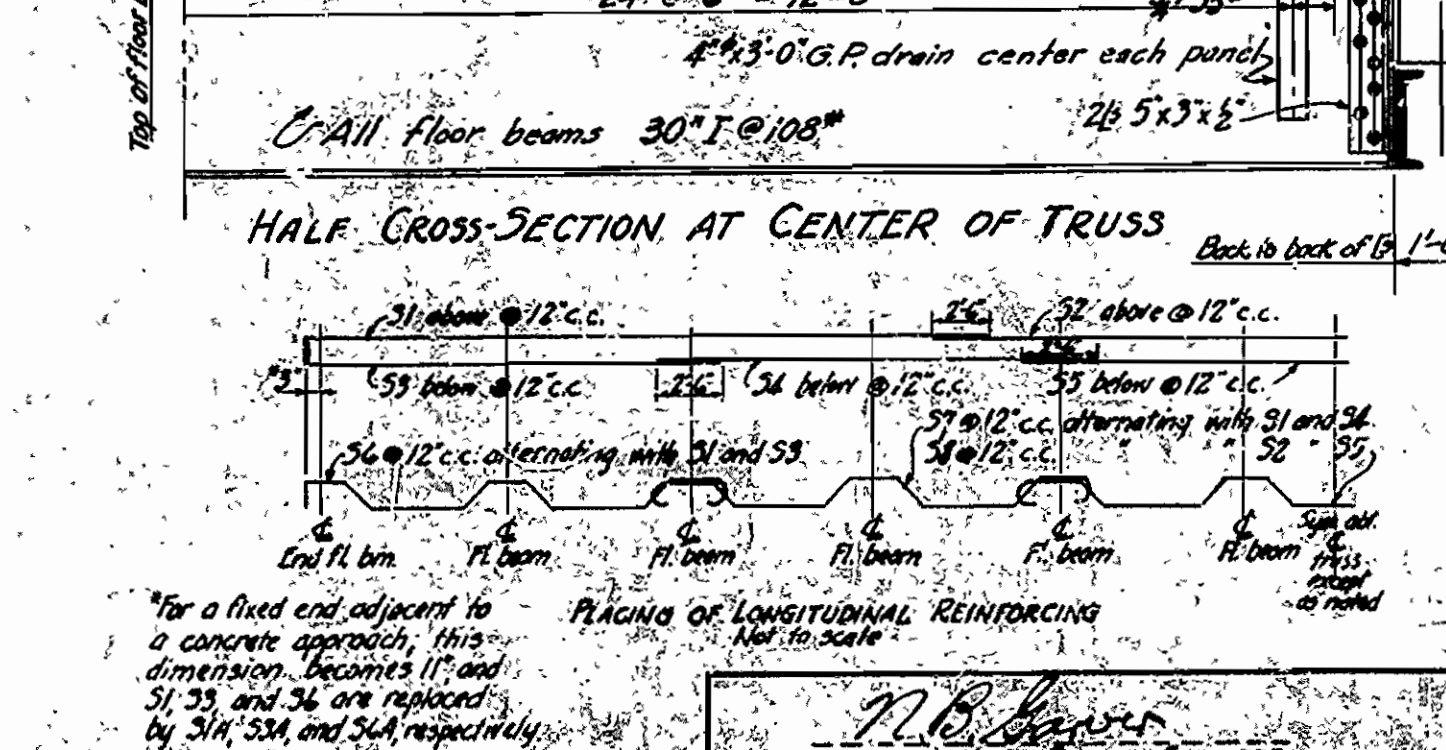 Top of floor
4"ᵠx3'-0" G.P. drain center each panel
2Ls 5"x3"x½"
All floor beams 30" I @ 108#
HALF CROSS-SECTION AT CENTER OF TRUSS
Back to back of
S1 above @ 12" c.c.
2'-6"
S2 above @ 12" c.c.
*3"
S3 below @ 12" c.c.
2'-6"
S4 below @ 12" c.c.
2'-6"
S5 below @ 12" c.c.
S7 @ 12" c.c. alternating with S1 and S4
S6 @ 12" c.c. alternating with S1 and S3
S8 @ 12" c.c. " " S2 " S5
℄ End fl. bm.
℄ Fl. beam
℄ Fl. beam
℄ Fl. beam
℄ Fl. beam
℄ Fl. beam
Sym. abt.
℄
truss
except
as noted
*For a fixed end adjacent to
a concrete approach, this
dimension becomes 11", and
S1, S3, and S6 are replaced
by S1A, S3A, and S6A, respectively.
PLACING OF LONGITUDINAL REINFORCING
Not to scale
N.B. Garver